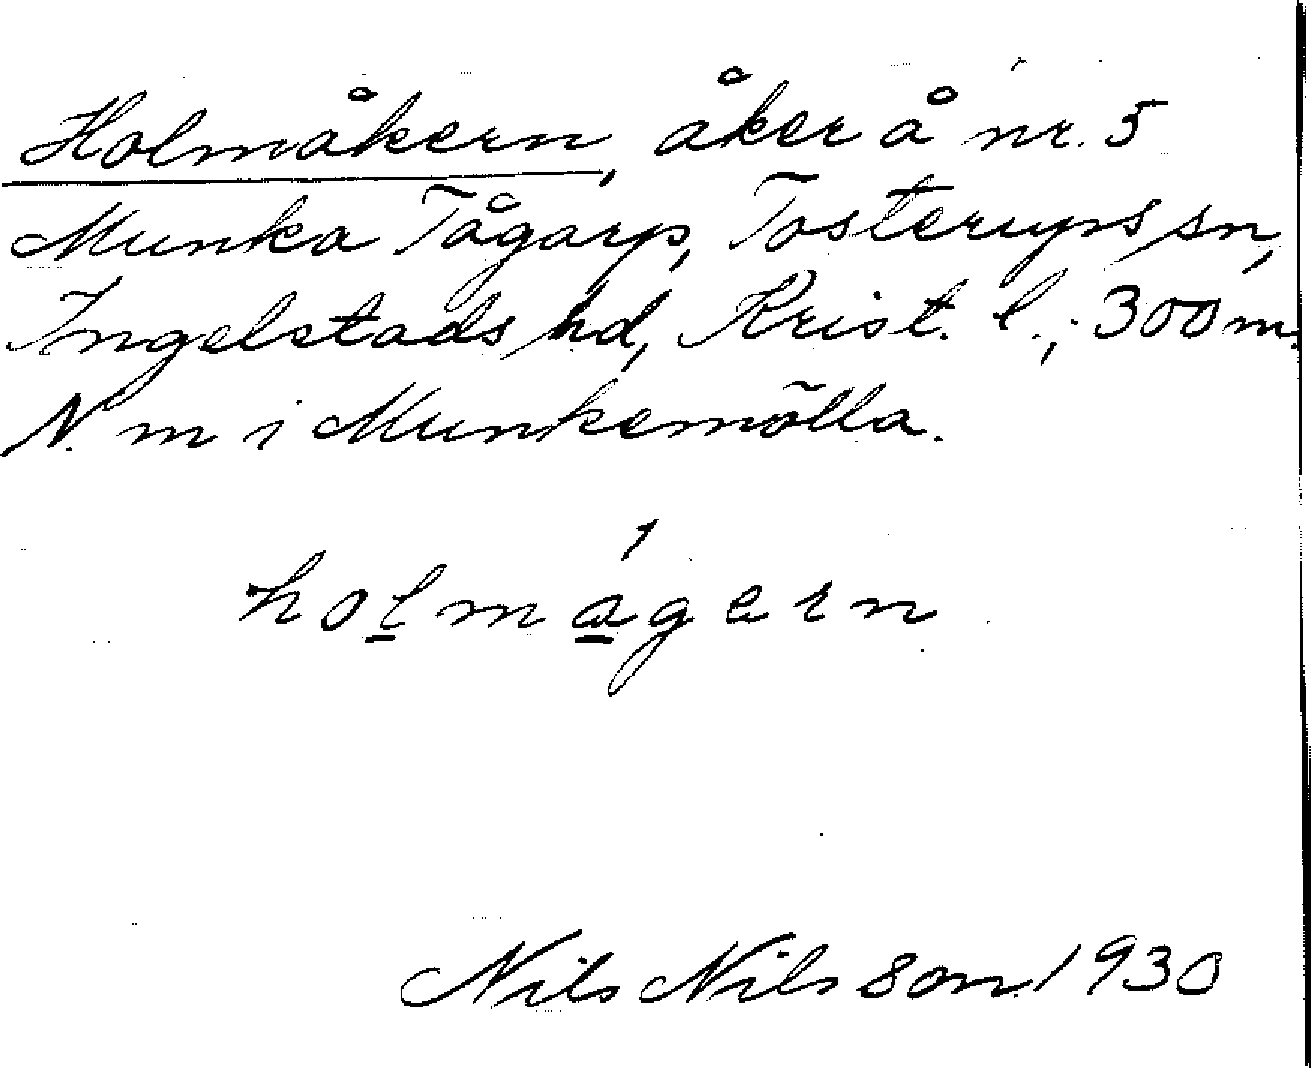 Holmåkern, åker å nr. 5
Munka Tågarp, Tosterups sn,
Ingelstads hd, Krist. l.; 300 m.
N. m i Munkemölla.
holmagern
Nils Nilsson 1930